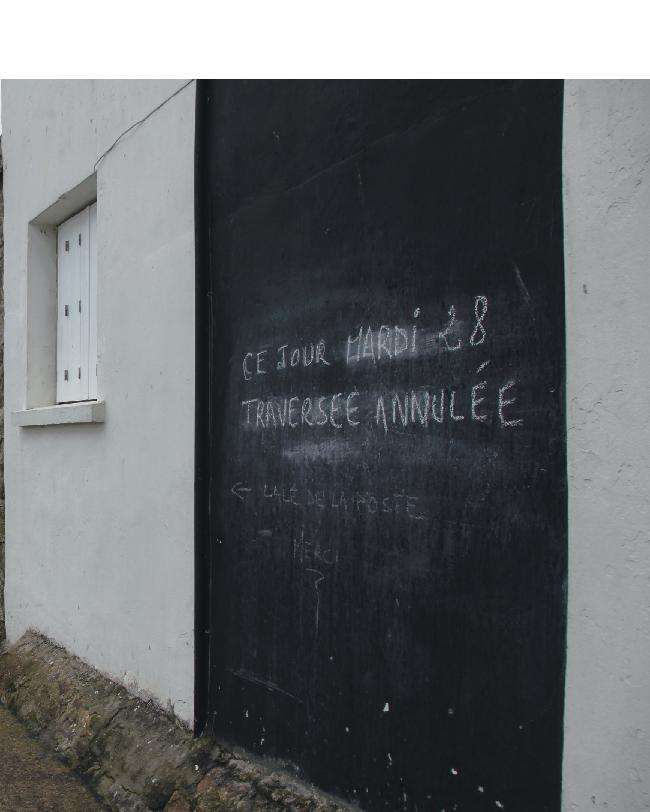 CE JOUR MARDI 28
TRAVERSEE ANNULÉE
← CALE DE LA
MERCI